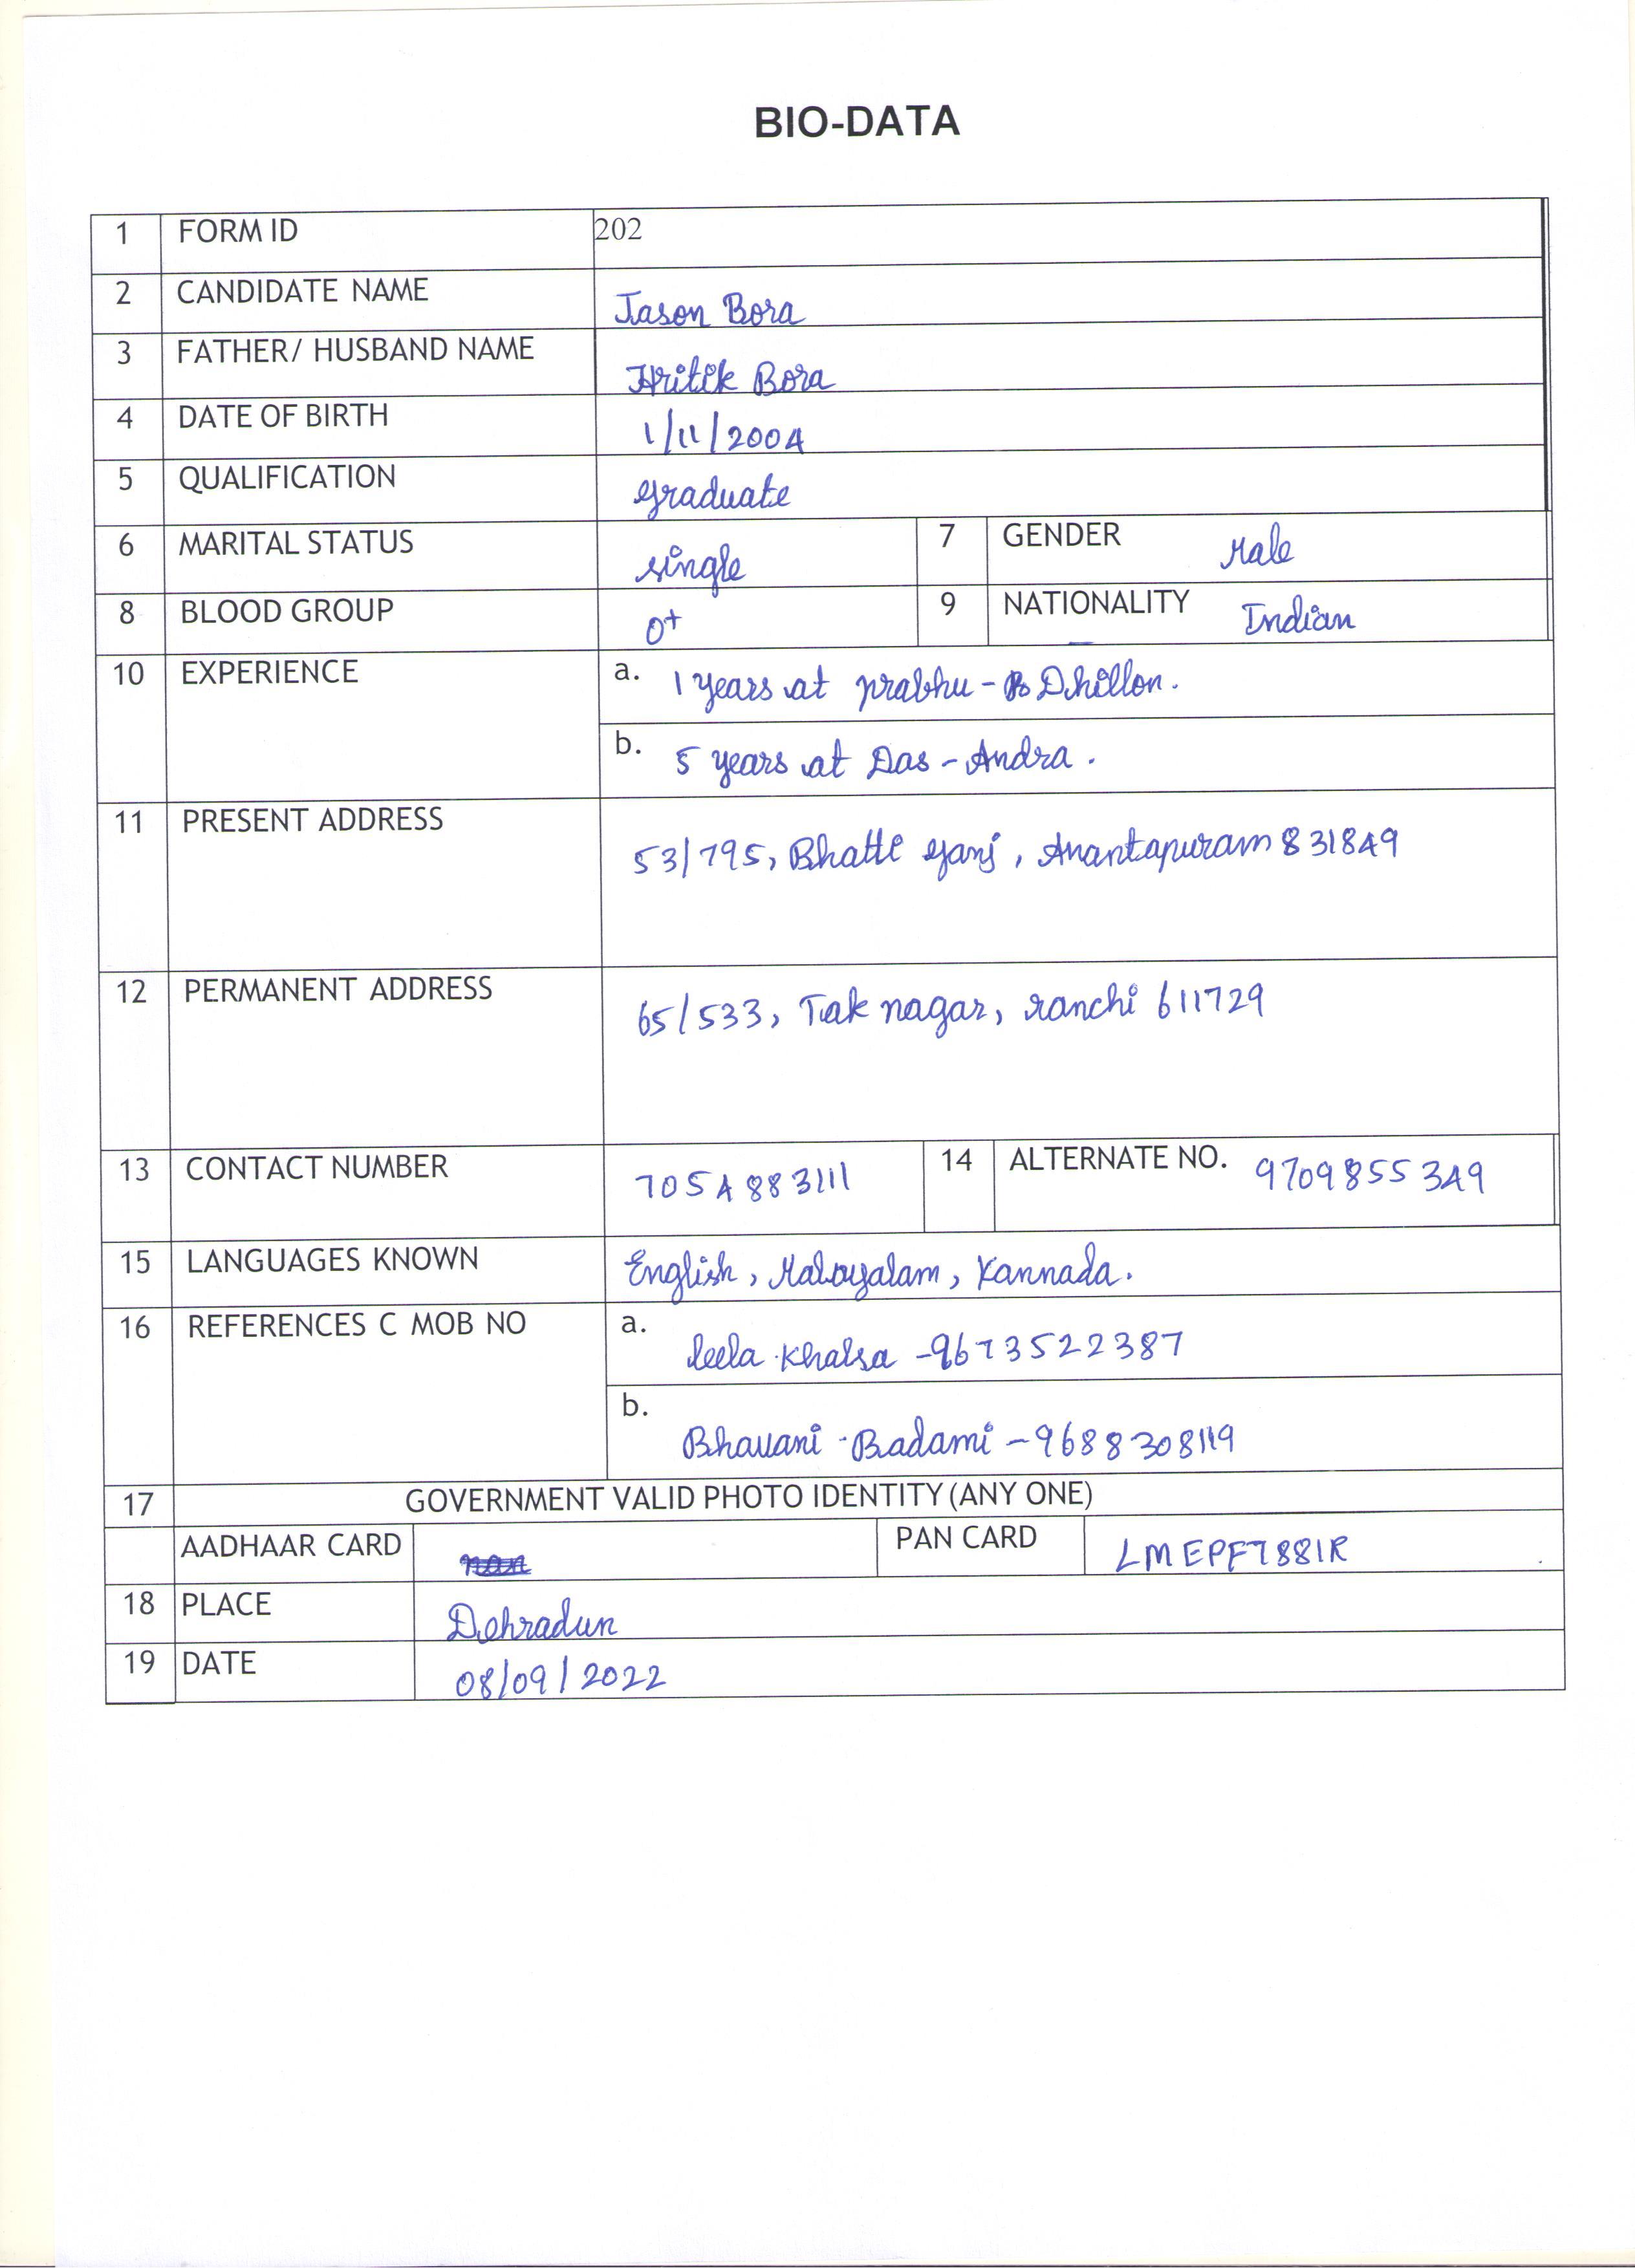 BIO-DATA
1 FORM ID 202
2 CANDIDATE NAME Jason Bora
3 FATHER/ HUSBAND NAME Hritik Bora
4 DATE OF BIRTH 1/11/2004
5 QUALIFICATION graduate
6 MARITAL STATUS single 7 GENDER Male
8 BLOOD GROUP O+ 9 NATIONALITY Indian
10 EXPERIENCE a. 1 years at prabhu - Dhillon.
b. 5 years at Das - Andra.
11 PRESENT ADDRESS 53/795, Bhatti ganj, Anantapuram 831849
12 PERMANENT ADDRESS 65/533, Tak nagar, ranchi 611729
13 CONTACT NUMBER 7054883111 14 ALTERNATE NO. 9709855349
15 LANGUAGES KNOWN English, Malayalam, Kannada.
16 REFERENCES C MOB NO a. leela Khalsa - 9673522387
b. Bhavani - Badami - 9688308119
17 GOVERNMENT VALID PHOTO IDENTITY (ANY ONE)
AADHAAR CARD PAN CARD LMEPF7881R
18 PLACE Dehradun
19 DATE 08/09/2022